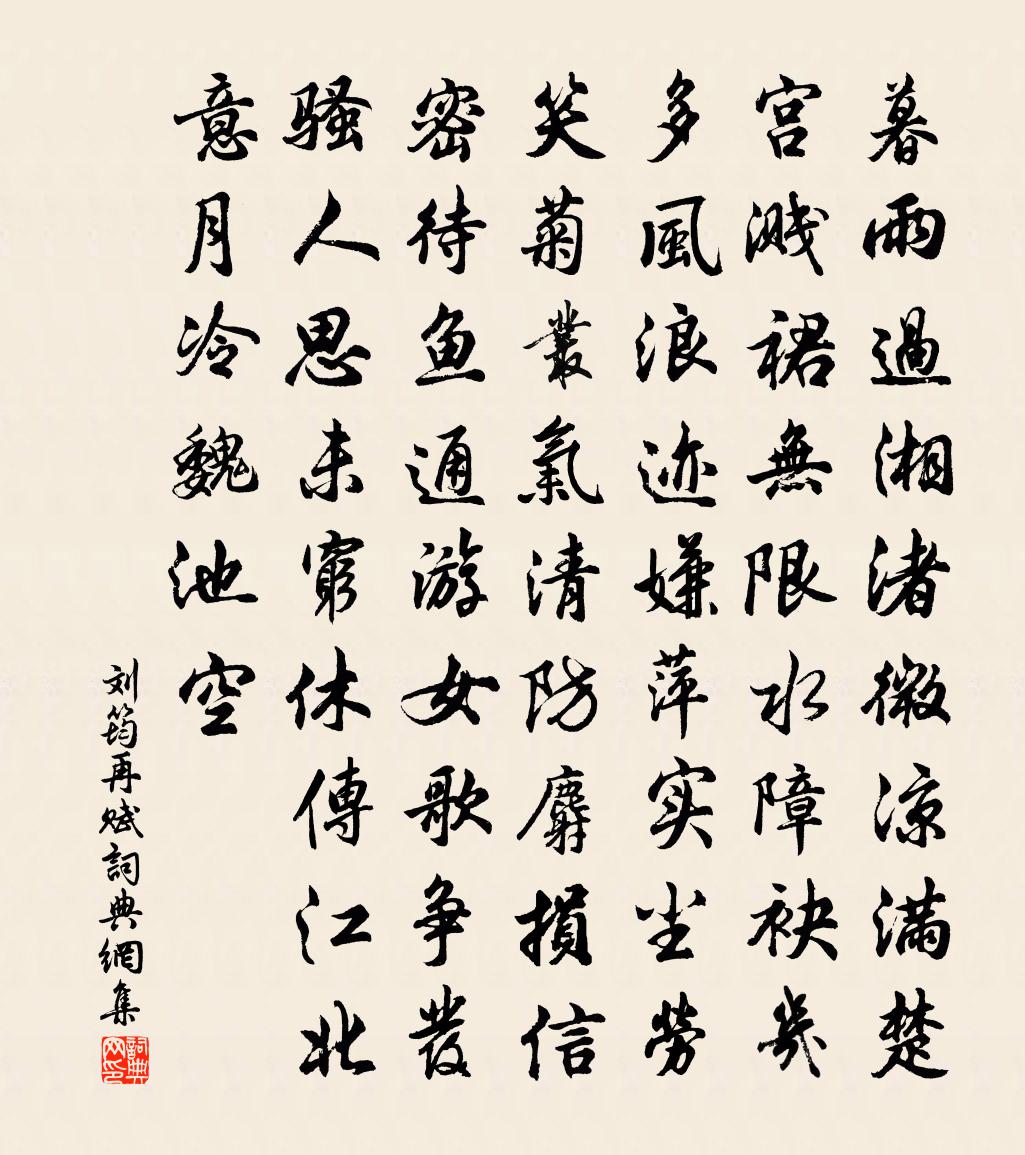 暮雨過湘渚微涼滿楚
宫濺裙無限水障袂幾
多風浪迹嫌萍实尘勞
笑菊叢氣清防麝損信
密待鱼通游女歌争發
騷人思未窮休傳江北
意月冷魏池空
刘筠再赋詞典網集
詞典网印